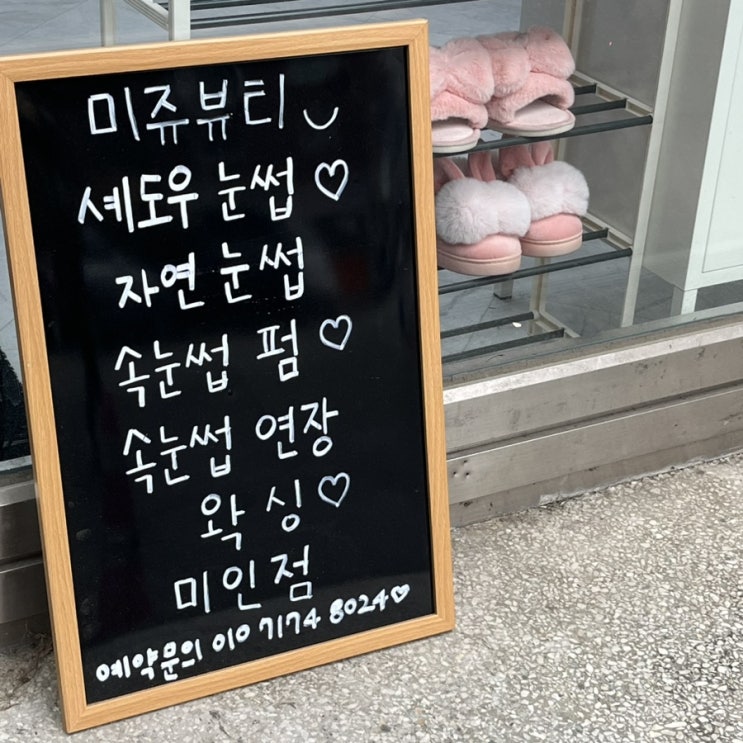 미쥬뷰티
섀도우 눈썹 ♡
자연 눈썹
속눈썹 펌 ♡
속눈썹 연장
왁싱 ♡
미인점
예약문의 010 7174 8024 ♡